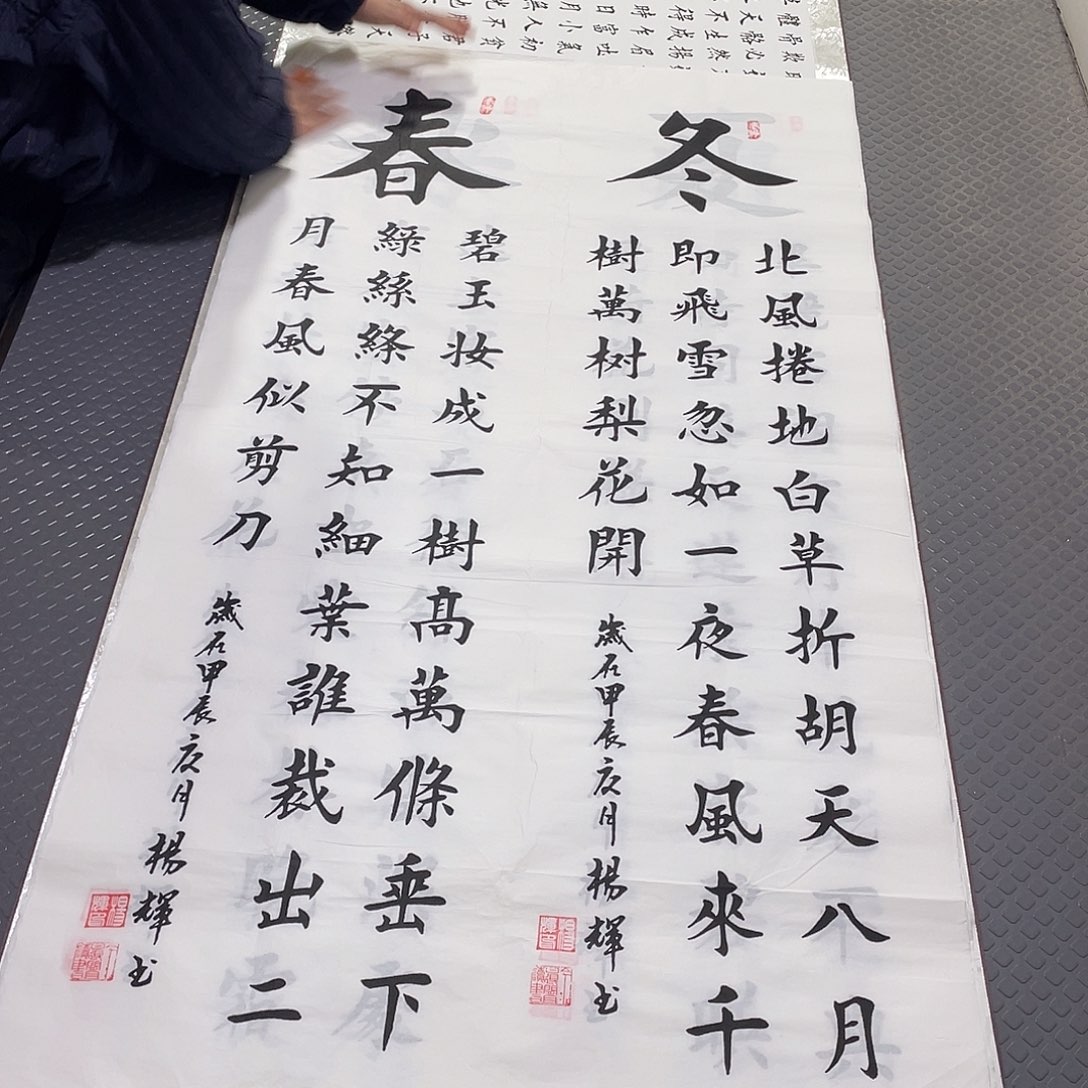 冬
北風捲地白草折胡天八月
即飛雪忽如一夜春風來千
樹萬树梨花開
歲在甲辰月楊輝书
春
碧玉妆成一樹髙萬條垂下
綠絲絛不知細葉誰裁出二
月春風似剪刀
歲在甲辰月楊輝书